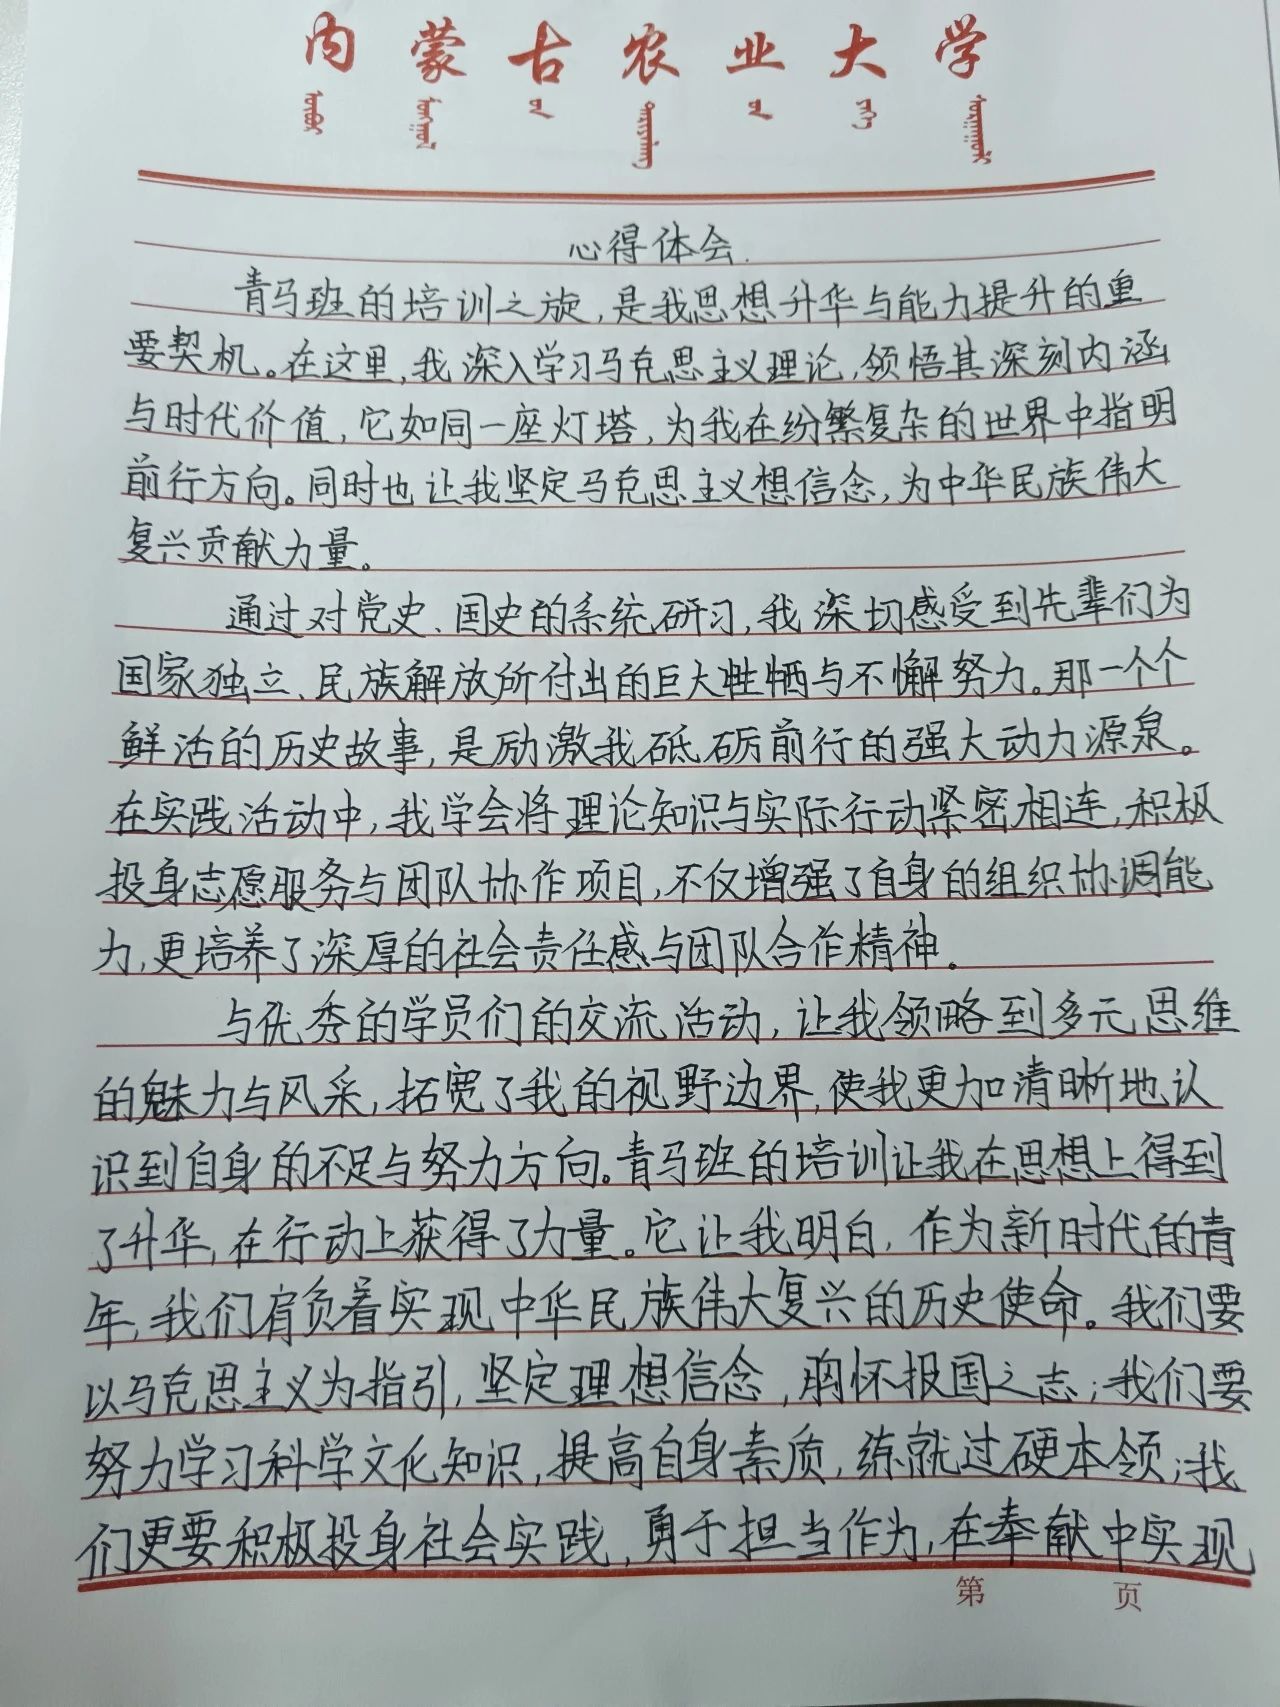 内蒙古农业大学
心得体会.
青马班的培训之旅,是我思想升华与能力提升的重
要契机。在这里,我深入学习马克思主义理论,领悟其深刻内涵
与时代价值,它如同一座灯塔,为我在纷繁复杂的世界中指明
前行方向。同时也让我坚定马克思主义想信念,为中华民族伟大
复兴贡献力量。
通过对党史、国史的系统研习,我深切感受到先辈们为
国家独立、民族解放所付出的巨大牲牺与不懈努力。那一个个
鲜活的历史故事,是励激我砥砺前行的强大动力源泉。
在实践活动中,我学会将理论知识与实际行动紧密相连,积极
投身志愿服务与团队协作项目,不仅增强了自身的组织协调能
力,更培养了深厚的社会责任感与团队合作精神。
与优秀的学员们的交流活动,让我领略到多元思维
的魅力与风采,拓宽了我的视野边界,使我更加清晰地认
识到自身的不足与努力方向。青马班的培训让我在思想上得到
了升华,在行动上获得了力量。它让我明白,作为新时代的青
年,我们肩负着实现中华民族伟大复兴的历史使命。我们要
以马克思主义为指引,坚定理想信念,胸怀报国之志;我们要
努力学习科学文化知识,提高自身素质,练就过硬本领;我
们更要积极投身社会实践,勇于担当作为,在奉献中实现
第 页